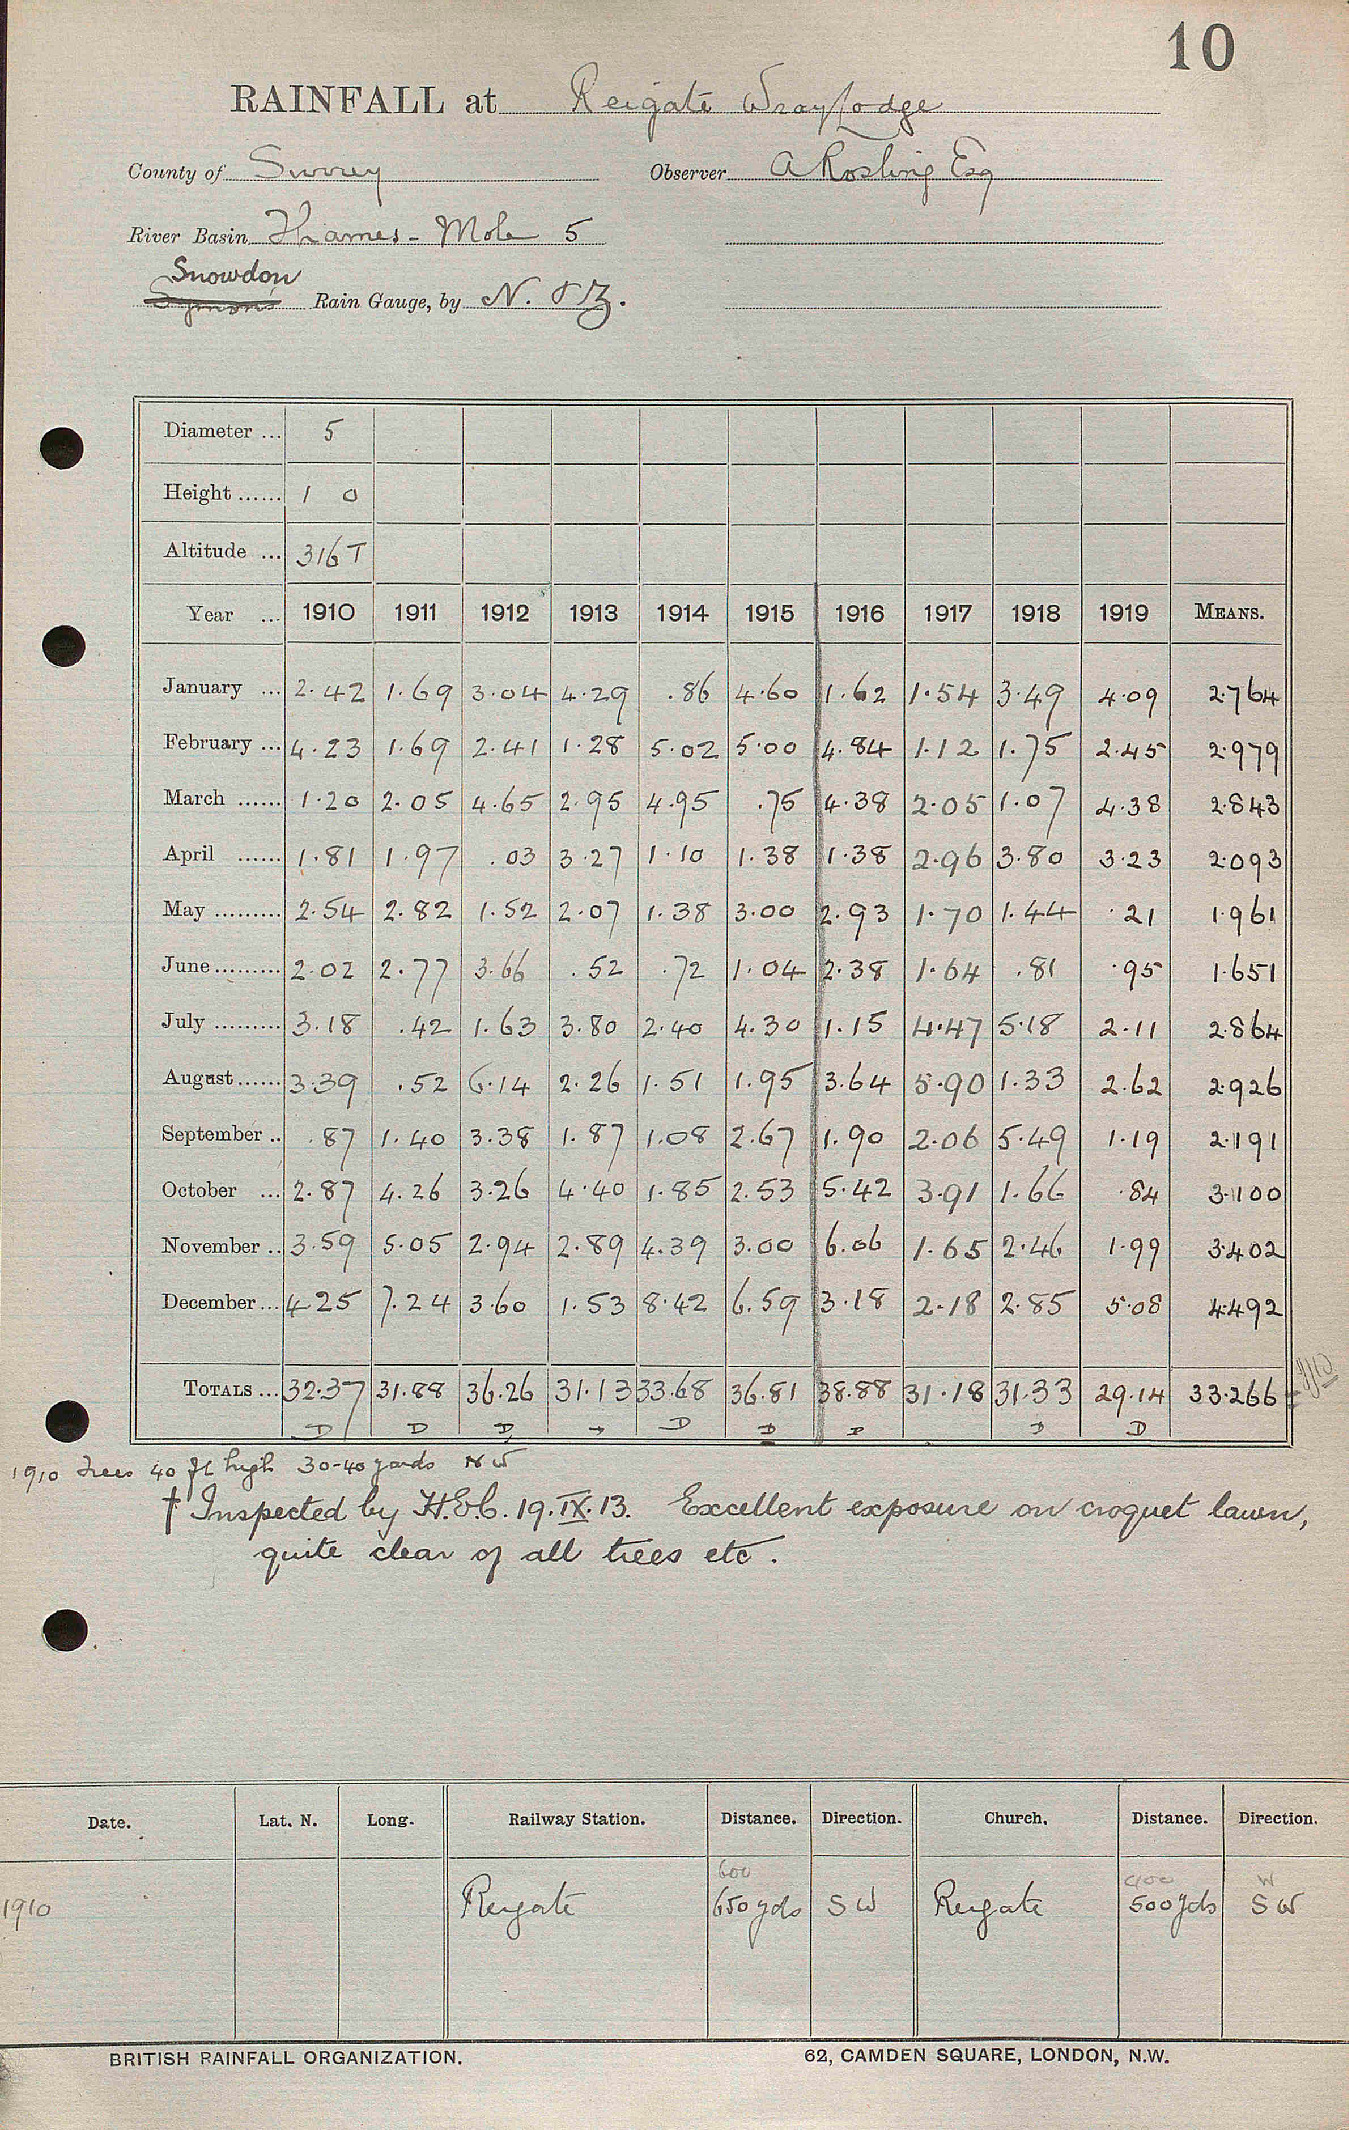 10
RAINFALL at Reigate Wray Lodge
County of Surrey Observer A Rosling Esq
River Basin Thames - Mole 5
Snowdon
Symons's Rain Gauge, by N. & Z.
Diameter ... 5
Height ...... 1 0
Altitude ... 316 T
Year ... 1910 1911 1912 1913 1914 1915 1916 1917 1918 1919 MEANS.
January ... 2.42 1.69 3.04 4.29 .86 4.60 1.62 1.54 3.49 4.09 2.764
February ... 4.23 1.69 2.41 1.28 5.02 5.00 4.84 1.12 1.75 2.45 2.979
March ...... 1.20 2.05 4.65 2.95 4.95 .75 4.38 2.05 1.07 4.38 2.843
April ...... 1.81 1.97 .03 3.27 1.10 1.38 1.38 2.96 3.80 3.23 2.093
May ......... 2.54 2.82 1.52 2.07 1.38 3.00 2.93 1.70 1.44 .21 1.961
June ......... 2.02 2.77 3.66 .52 .72 1.04 2.38 1.64 .81 .95 1.651
July ......... 3.18 .42 1.63 3.80 2.40 4.30 1.15 4.47 5.18 2.11 2.864
August ...... 3.39 .52 6.14 2.26 1.51 1.95 3.64 5.90 1.33 2.62 2.926
September .. .87 1.40 3.38 1.87 1.08 2.67 1.90 2.06 5.49 1.19 2.191
October ... 2.87 4.26 3.26 4.40 1.85 2.53 5.42 3.91 1.66 .84 3.100
November .. 3.59 5.05 2.94 2.89 4.39 3.00 6.06 1.65 2.46 1.99 3.402
December ... 4.25 7.24 3.60 1.53 8.42 6.59 3.18 2.18 2.85 5.08 4.492
TOTALS ... 32.37 31.88 36.26 31.13 33.68 36.81 38.88 31.18 31.33 29.14 33.266
D D D D D D D D
1910 Trees 40 ft high 30-40 yards NW
† Inspected by 19.IX.13. Excellent exposure on croquet lawn,
quite clear of all trees etc.
Date. Lat. N. Long. Railway Station. Distance. Direction. Church. Distance. Direction.
600 400 W
1910 Reigate 650 yds SW Reigate 500 yds SW
BRITISH RAINFALL ORGANIZATION. 62, CAMDEN SQUARE, LONDON, N.W.